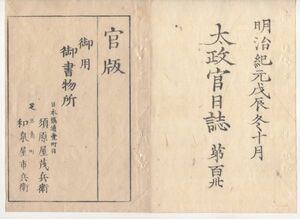 明治紀元戊辰冬十月
太政官日誌 第百卅
官版
御用
御書物所
日本橋通壹町目
須原屋茂兵衛
芝
和泉屋市兵衛